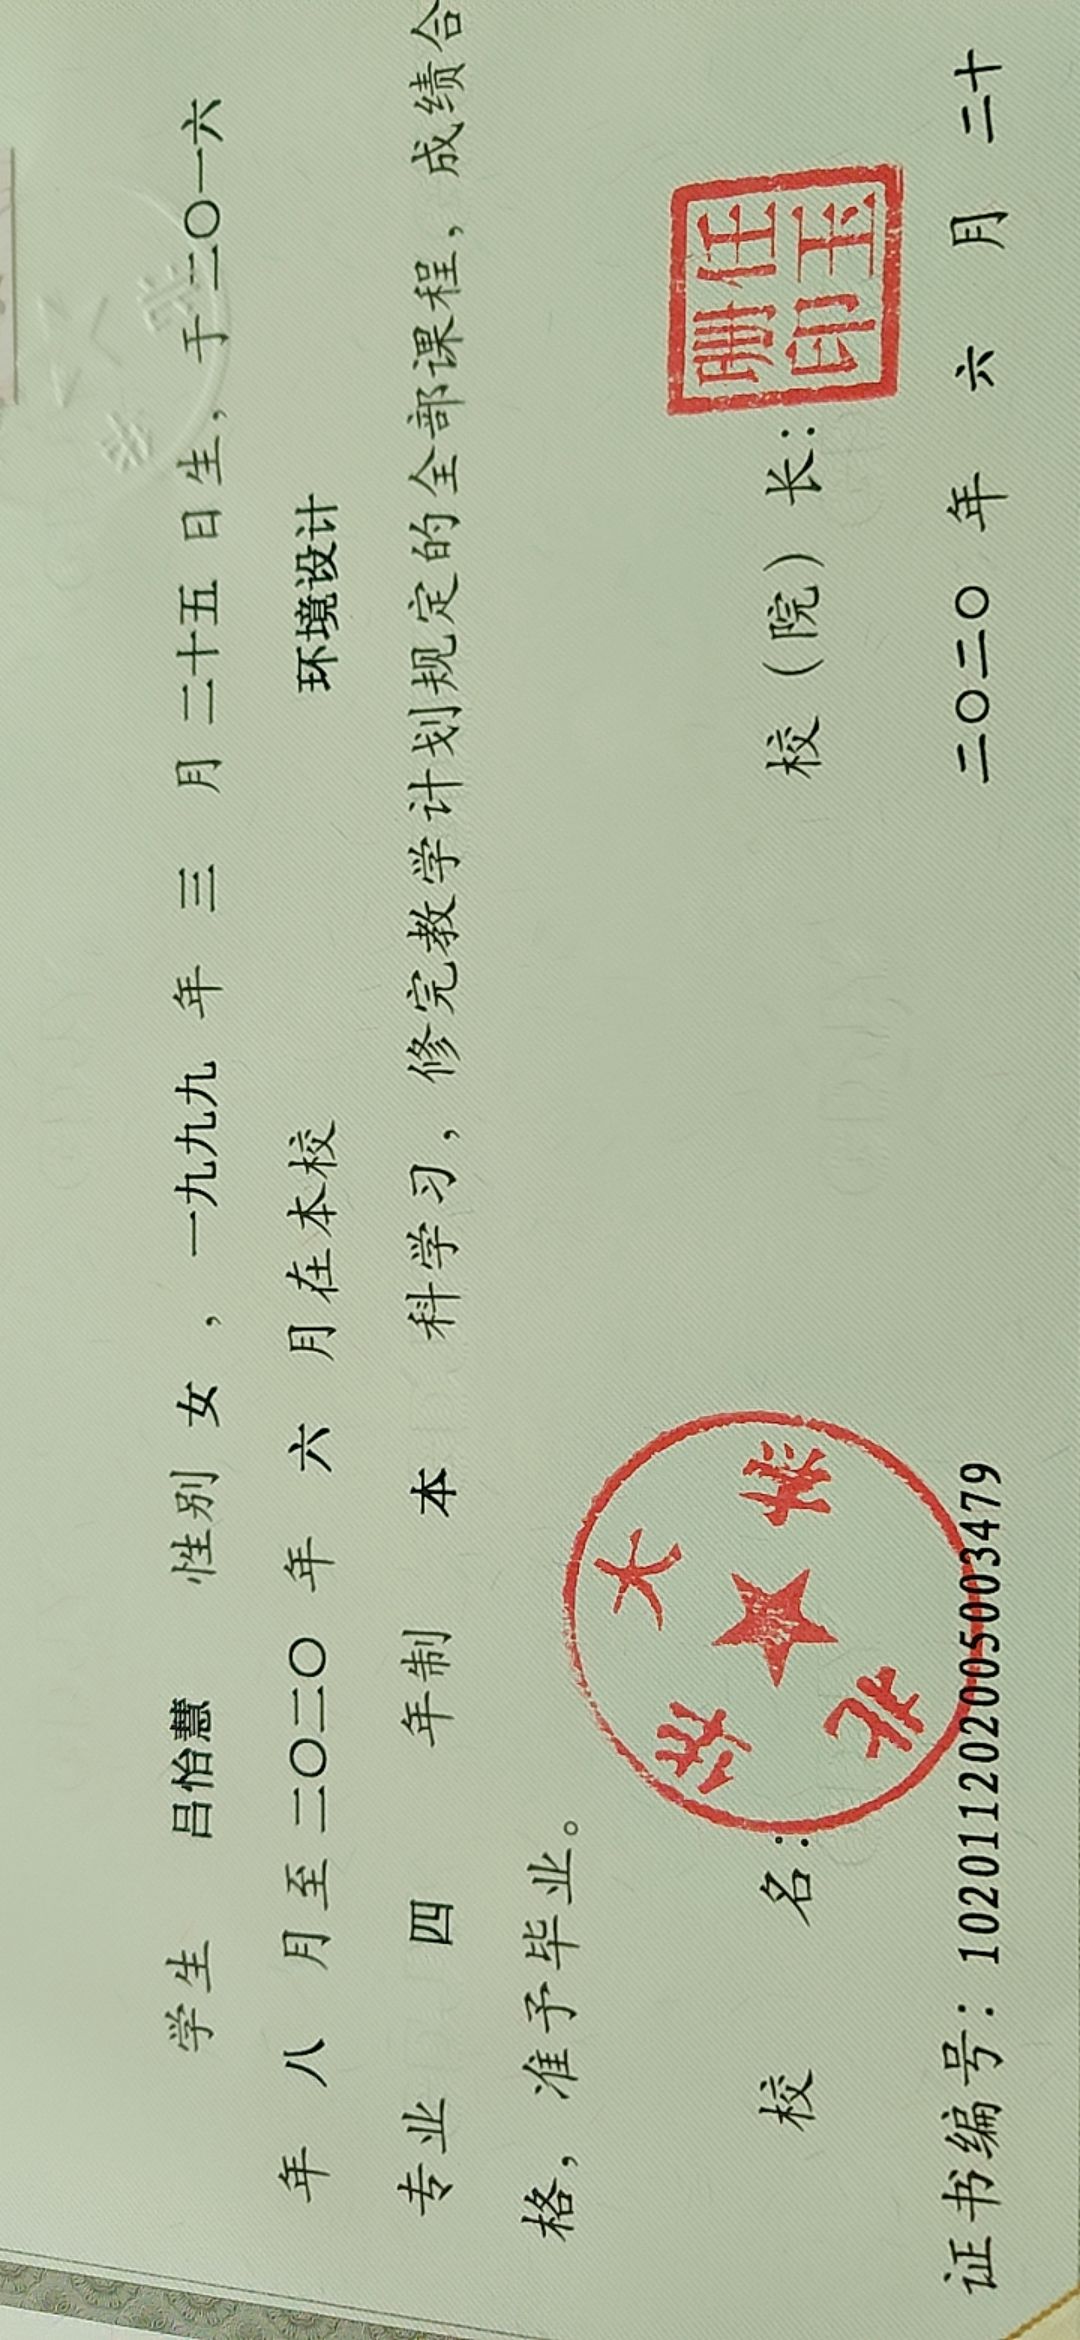 学生 吕怡慧 性别 女 ，一九九九 年 三 月二十五 日生，于二〇一六
年 八 月至二〇二〇 年 六 月在本校 环境设计
专业 四 年制 本 科学习，修完教学计划规定的全部课程，成绩合
格，准予毕业。
校 名： 北华大学
校（院）长：
任玉珊印
证书编号：102011202005003479
二〇二〇 年 六 月 二十